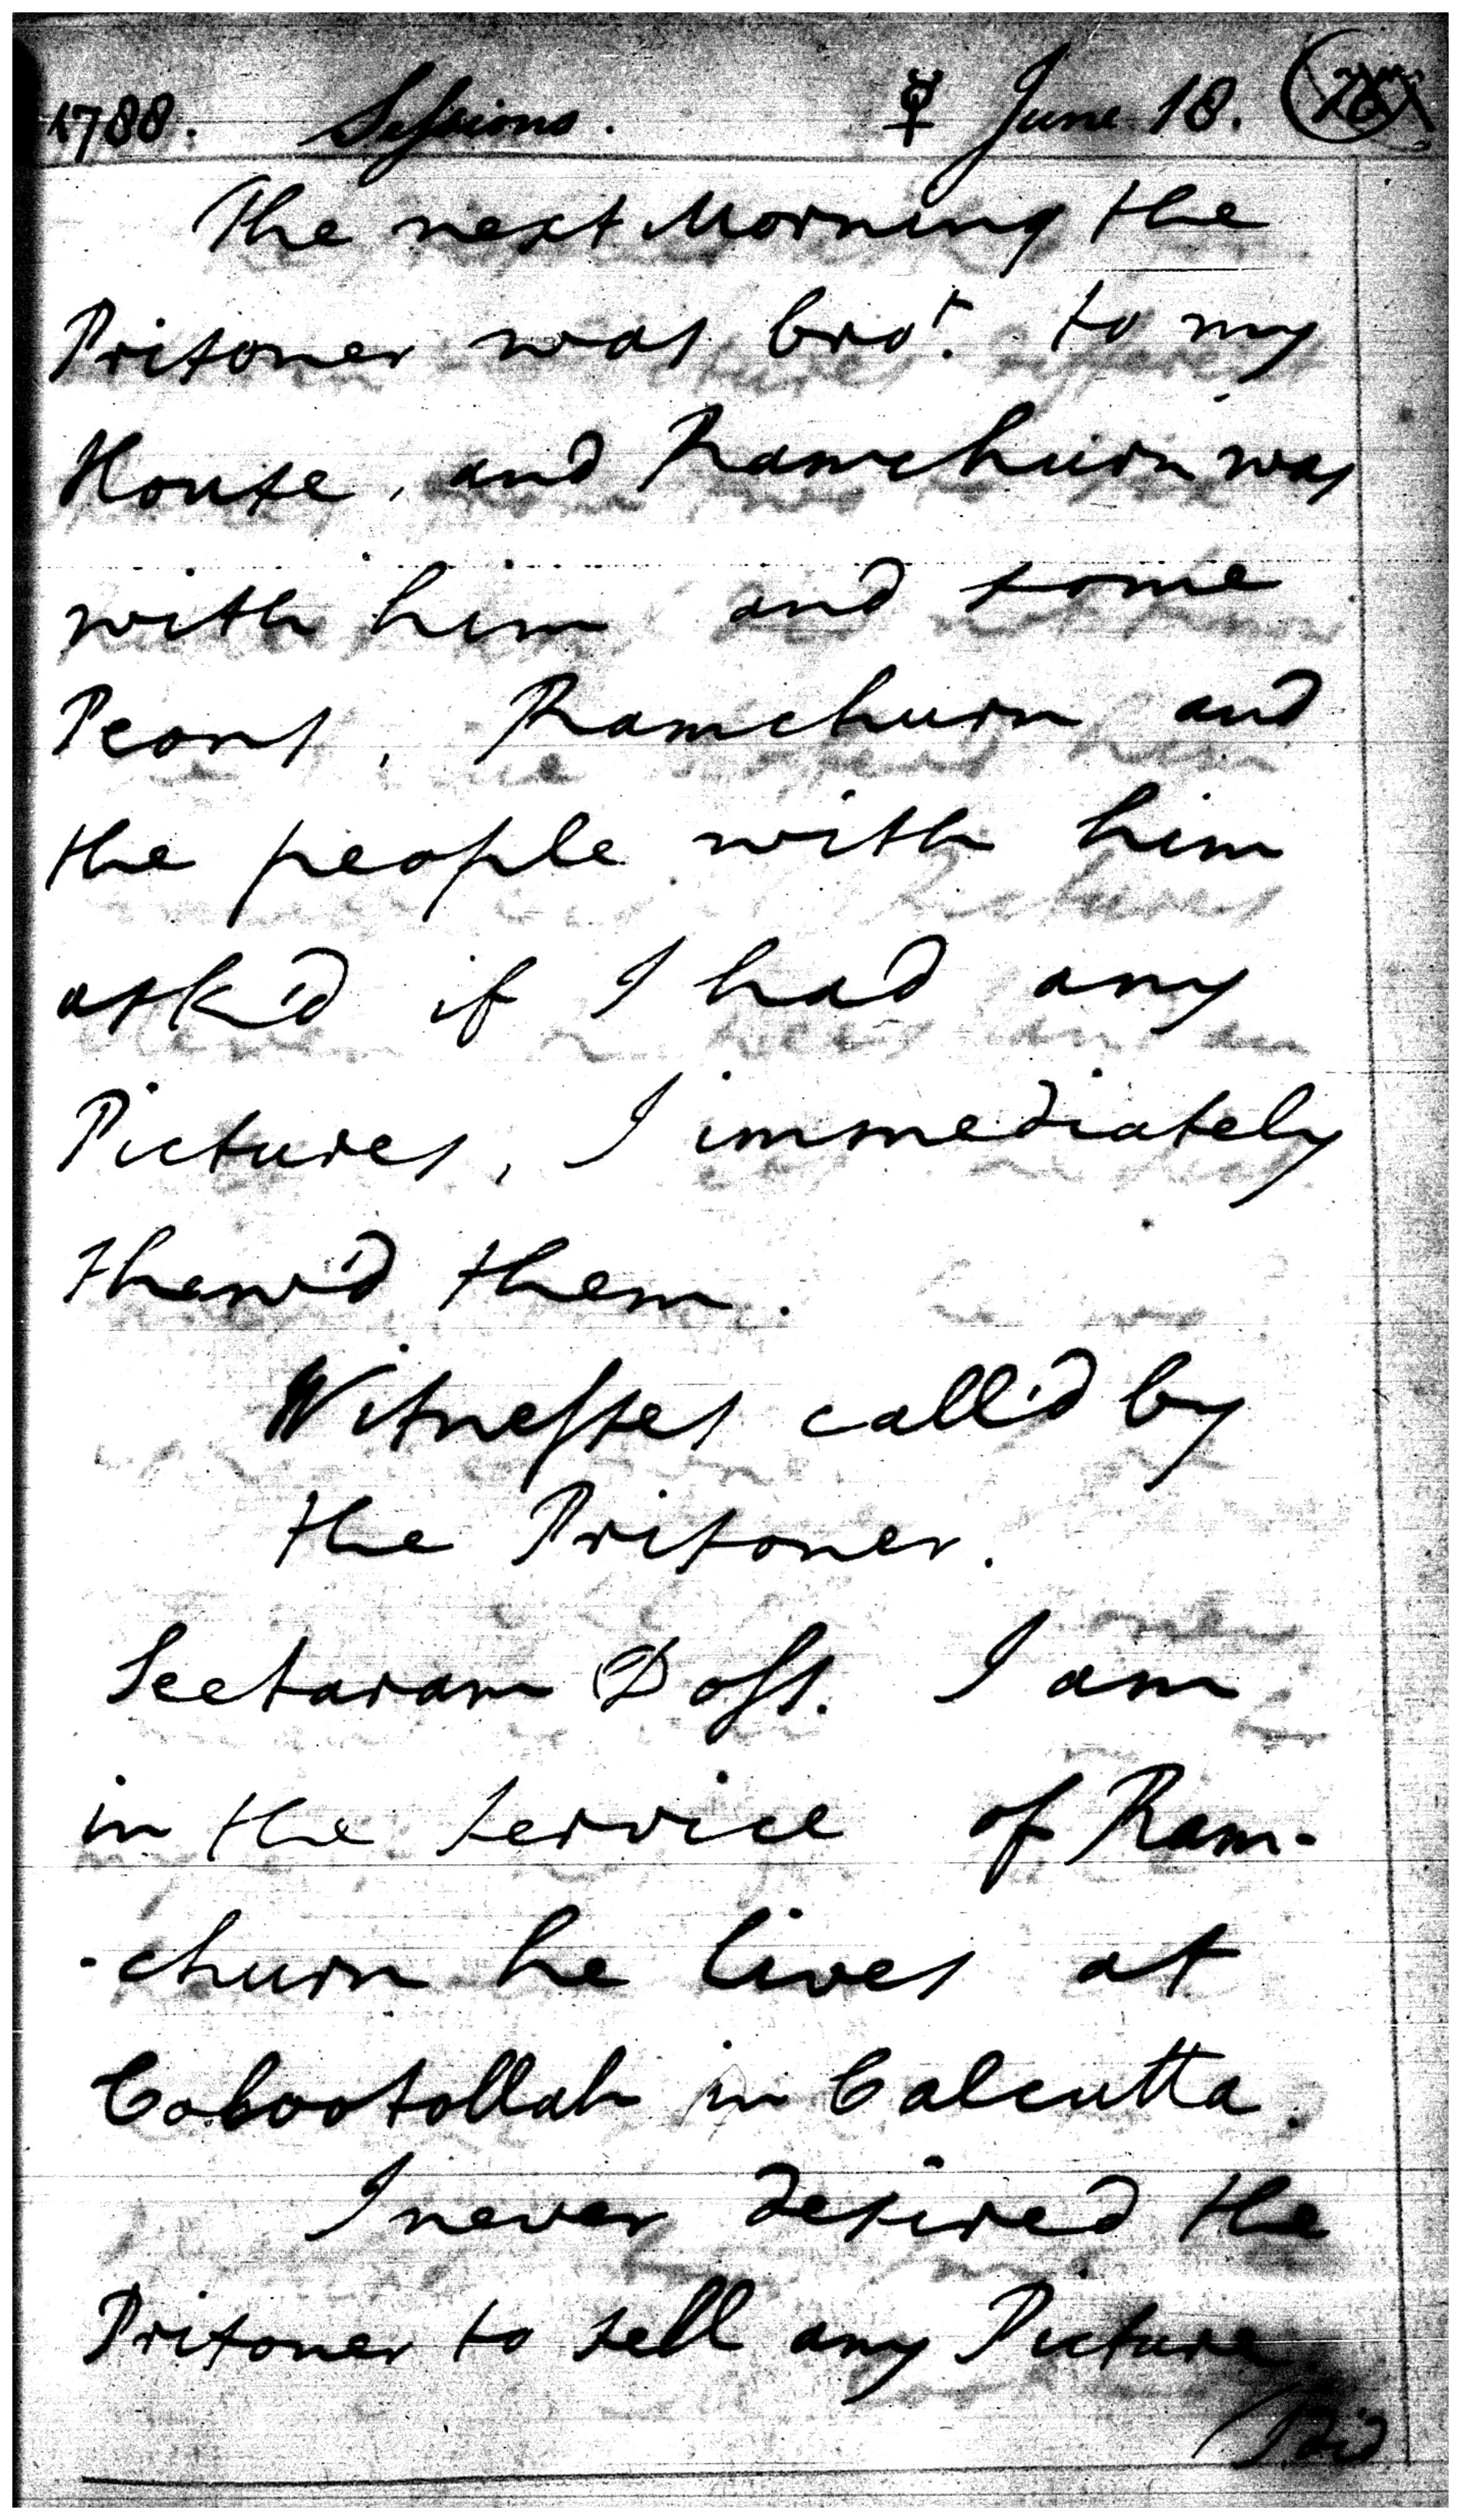 1788. Sessions. ☿ June 18.
The next Morning the
Prisoner was bro.t to my
House, and Ramchurn was
with him and some
Peons, Ramchurn and
the people with him
ask'd if I had any
Pictures, I immediately
shew'd them.
Witnesses call'd by
the Prisoner.
Seetaram Doss. I am
in the service of Ram-
-churn he lives at
Cobootollah in Calcutta.
I never desired the
Prisoner to sell any Picture.